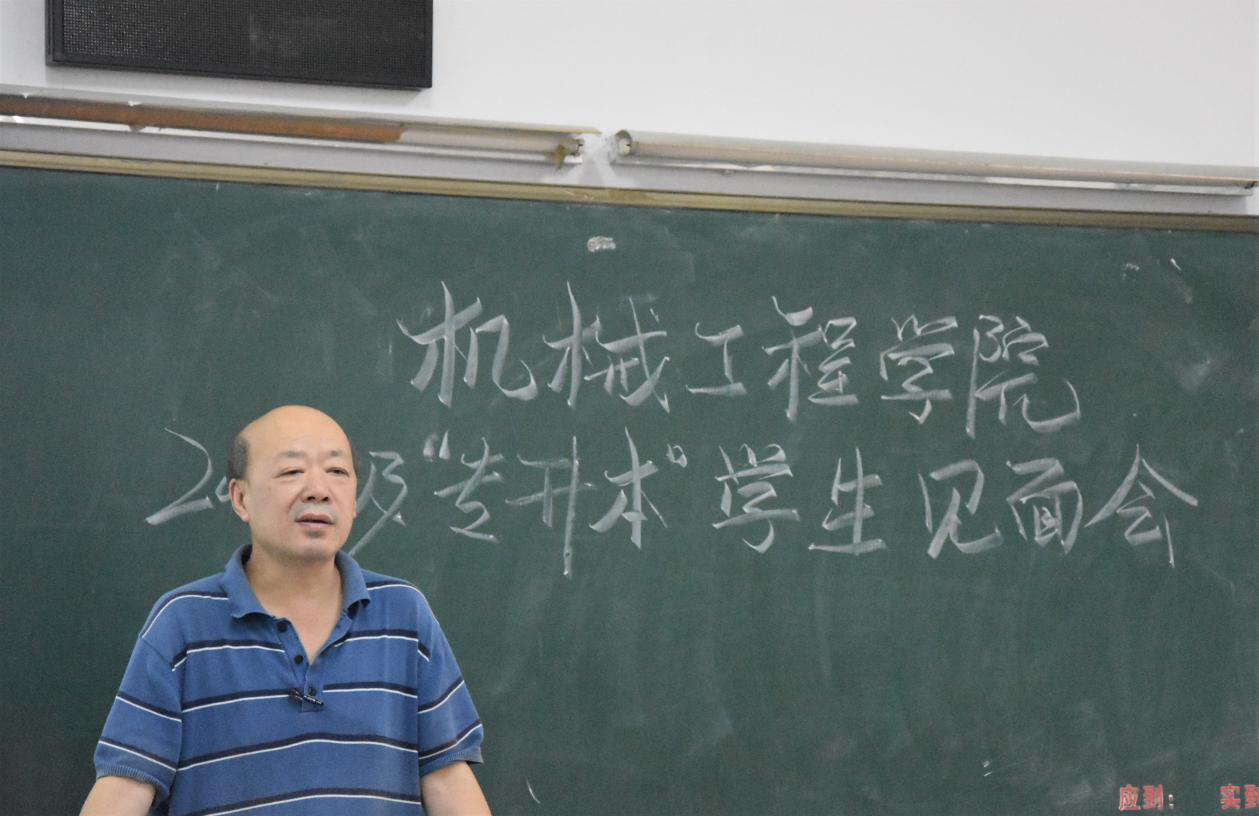 机械工程学院
2 级"专升本"学生见面会
应到： 实到